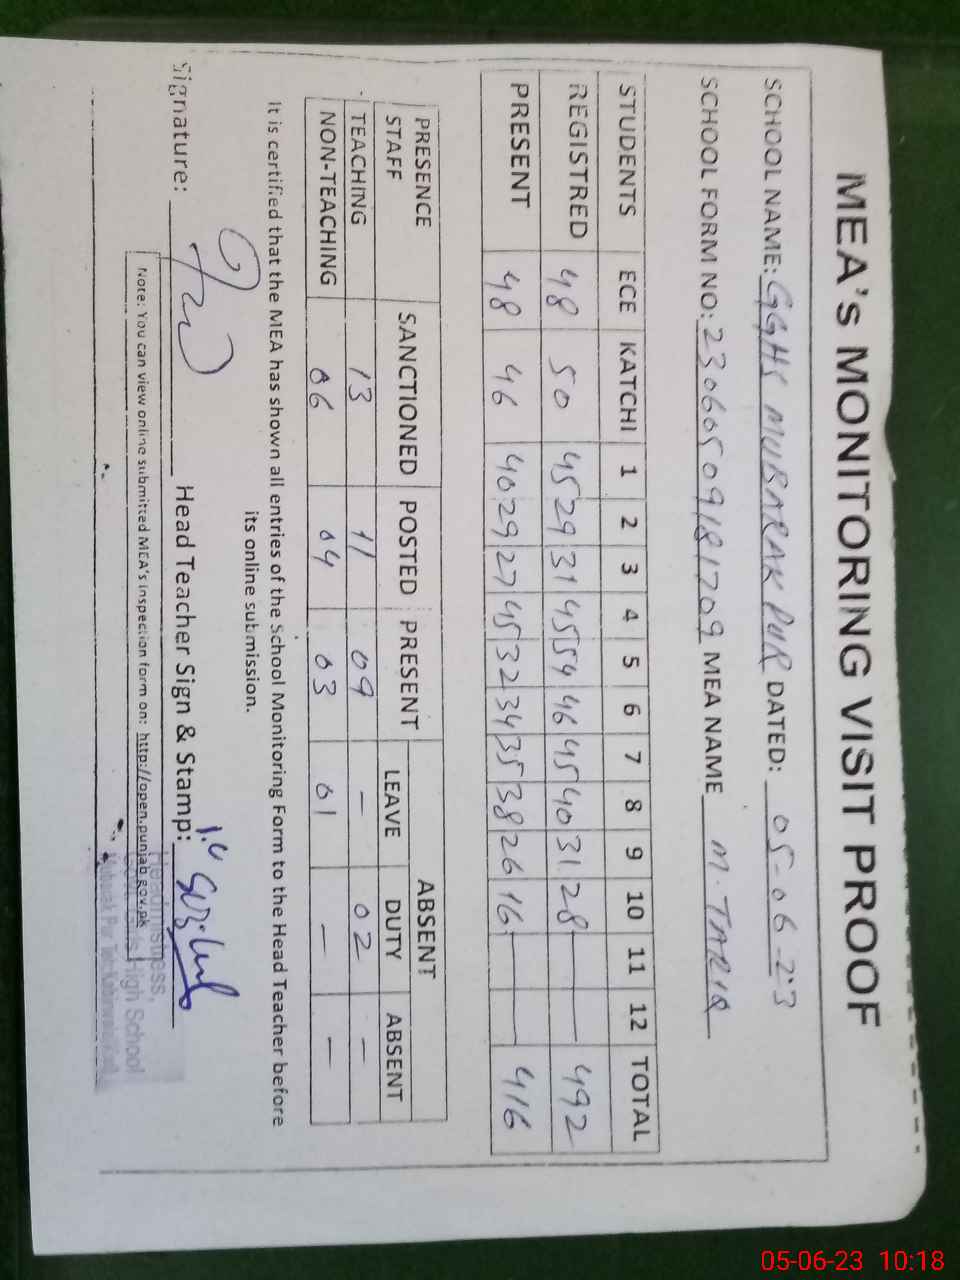 MEA'S MONITORING VISIT PROOF
SCHOOL NAME: GGHS MUBARAK PUR DATED: 05-06-23
SCHOOL FORM NO: 23066509181709 MEA NAME M. TARIQ
STUDENTS ECE KATCHI 1 2 3 4 5 6 7 8 9 10 11 12 TOTAL
REGISTRED 48 50 45 29 31 45 54 46 45 40 31 28 — — 492
PRESENT 48 46 40 29 27 45 32 34 35 38 26 16 — — 416
PRESENCE STAFF SANCTIONED POSTED PRESENT ABSENT
LEAVE DUTY ABSENT
TEACHING 13 11 09 – 02 –
NON-TEACHING 06 04 03 01 – –
It is certified that the MEA has shown all entries of the School Monitoring Form to the Head Teacher before
its online submission.
Signature: Head Teacher Sign & Stamp:
Headmistress,
High School
Mubarak Pur
Note: You can view online submitted MEA's inspection form on: http://open.punjab.gov.pk
05-06-23 10:18